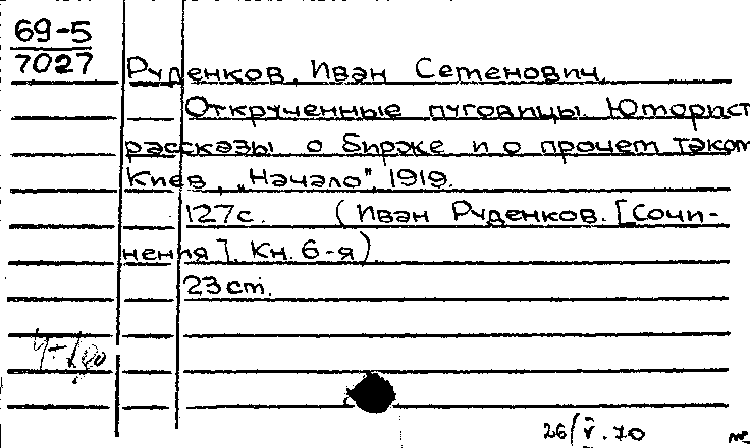 69-5
7027
Руденков, Иван Семенович.
Открученные пуговицы. Юморист
рассказы о бирже и о прочем таком
Киев, „Начало", 1919.
127с. (Иван Руденков. [Сочи-
нения]. Кн. 6-я)
23 cm.
26/V.70